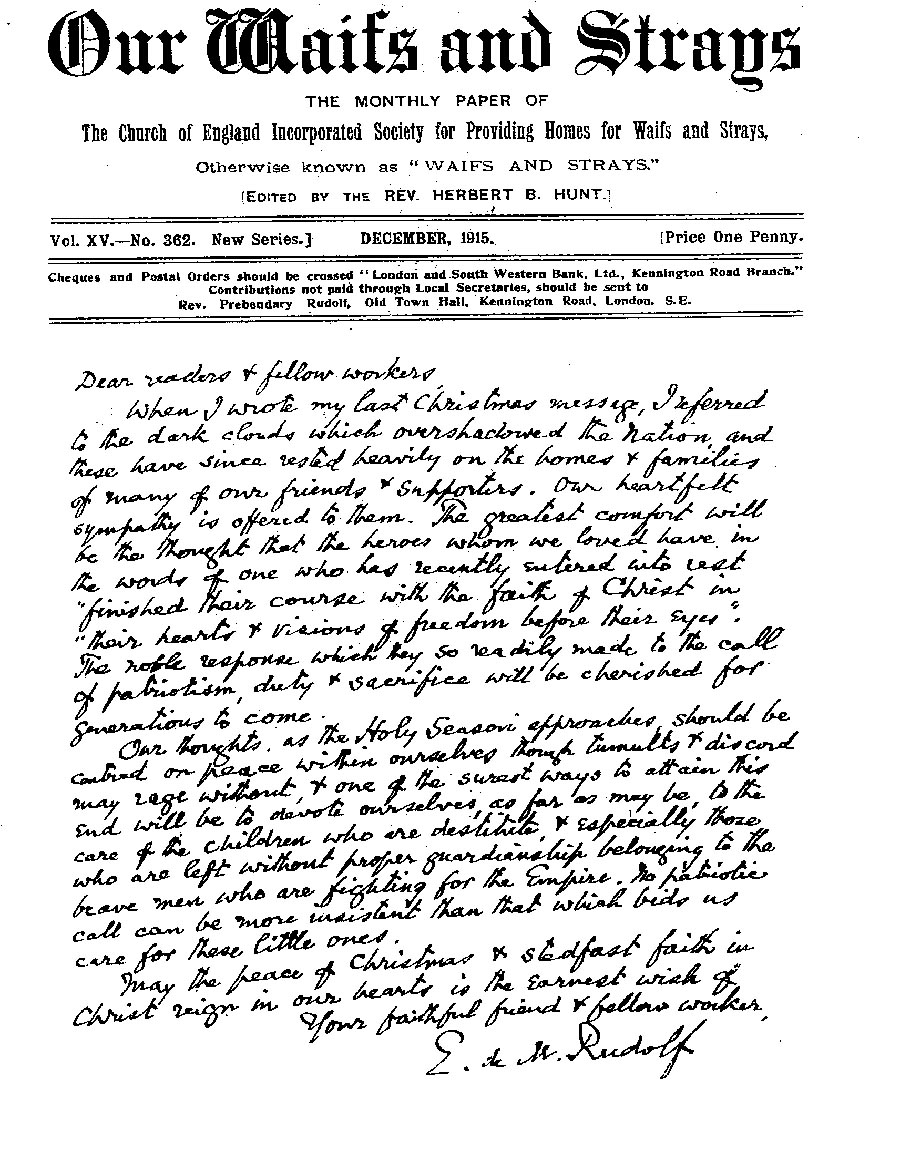 Our Waifs and Strays
THE MONTHLY PAPER OF
The Church of England Incorporated Society for Providing Homes for Waifs and Strays,
Otherwise known as "WAIFS AND STRAYS."
[EDITED BY THE REV. HERBERT B. HUNT.]
Vol. XV.—No. 362. New Series.] DECEMBER, 1915. [Price One Penny.
Cheques and Postal Orders should be crossed "London and South Western Bank, Ltd., Kennington Road Branch."
Contributions not paid through Local Secretaries, should be sent to
Rev. Prebendary Rudolf, Old Town Hall, Kennington Road, London, S.E.
Dear readers & fellow workers,
When I wrote my last Christmas message, I referred
to the dark clouds which overshadowed the Nation, and
these have since rested heavily on the homes & families
of many of our friends & supporters. Our heartfelt
sympathy is offered to them. The greatest comfort will
be the thought that the heroes whom we loved have, in
the words of one who has recently entered into rest
"finished their course with the faith of Christ in
"their hearts & visions of freedom before their eyes".
The noble response which they so readily made to the call
of patriotism, duty & sacrifice will be cherished for
generations to come.
Our thoughts, as the Holy Season approaches, should be
centred on peace within ourselves though tumults & discord
may rage without, & one of the surest ways to attain this
end will be to devote ourselves, as far as may be, to the
care of the children who are destitute, & especially those
who are left without proper guardianship belonging to the
brave men who are fighting for the Empire. No patriotic
call can be more insistent than that which bids us
care for these little ones.
May the peace of Christmas & stedfast faith in
Christ reign in our hearts is the earnest wish of
Your faithful friend & fellow worker,
E. de M. Rudolf